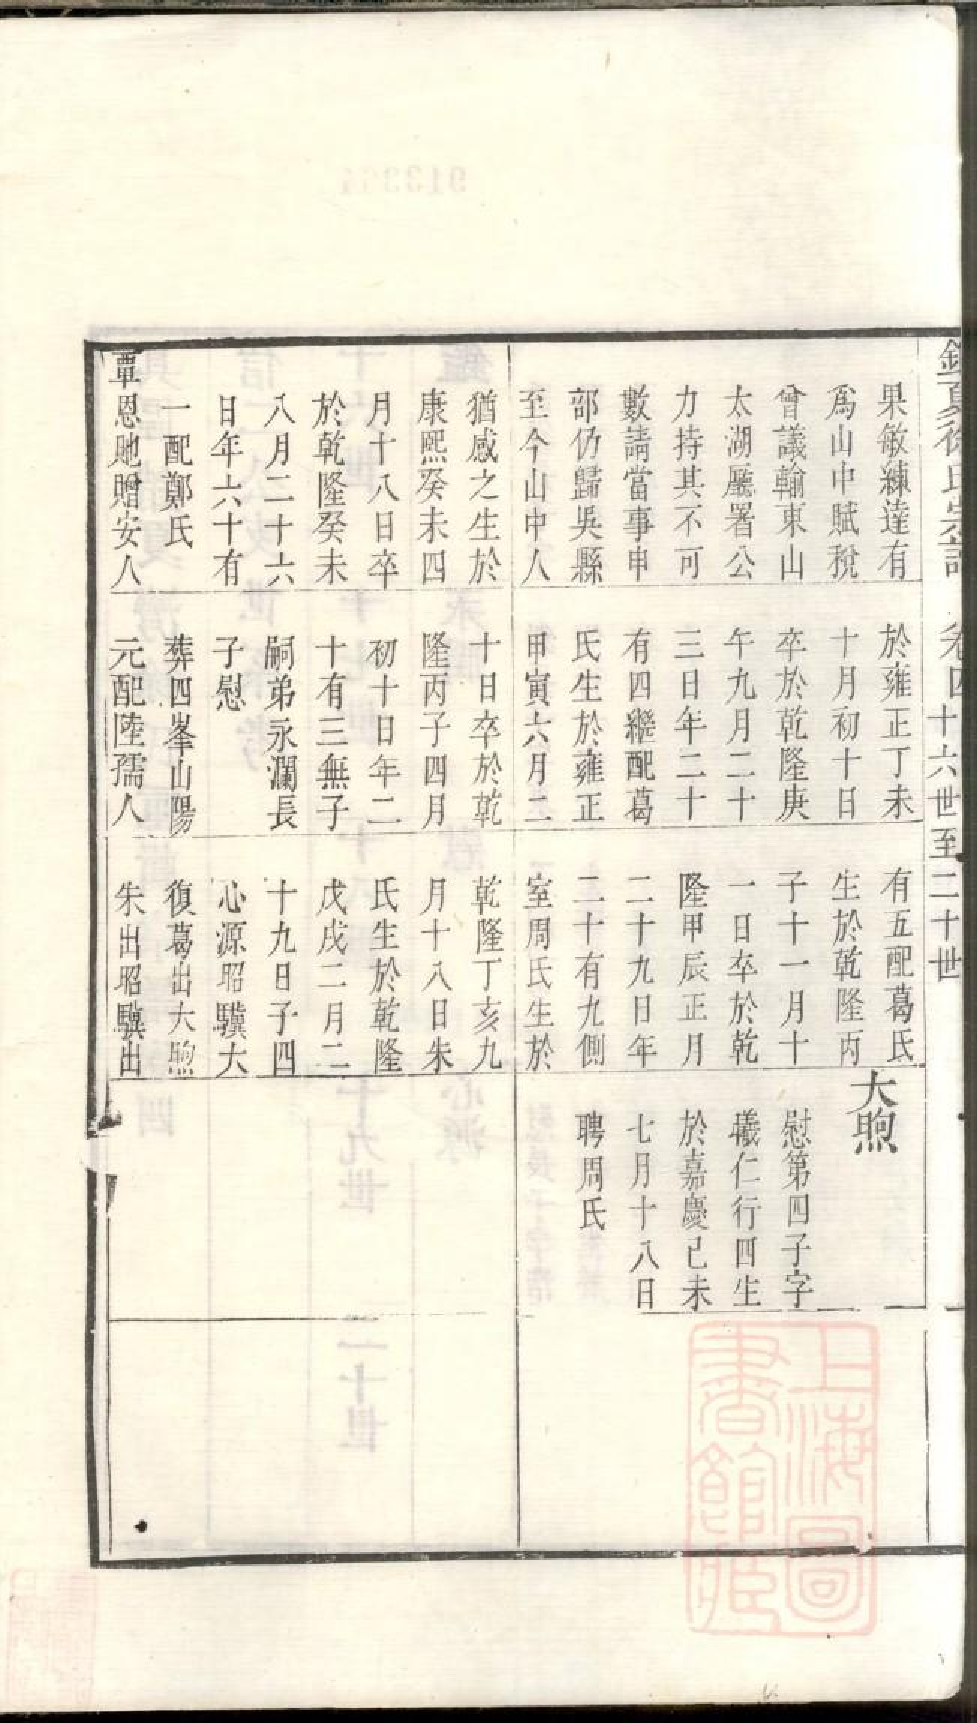 徐氏宗譜
卷四
十六世至二十世
果敏練達有
為山中賦稅
曾議輸東山
太湖廳署公
力持其不可
數請當事申
部仍歸吳縣
至今山中人
猶感之生於
康熙癸未四
月十八日卒
於乾隆癸未
八月二十六
日年六十有
一配鄭氏
覃恩貤贈安人
於雍正丁未
十月初十日
卒於乾隆庚
午九月二十
三日年二十
有四繼配葛
氏生於雍正
甲寅六月二
十日卒於乾
隆丙子四月
初十日年二
十有三無子
嗣弟永瀾長
子慰
葬四峯山陽
元配陸孺人
有五配葛氏
生於乾隆丙
子十一月十
一日卒於乾
隆甲辰正月
二十九日年
二十有九側
室周氏生於
乾隆丁亥九
月十八日朱
氏生於乾隆
戊戌二月二
十九日子四
心源昭驥大
復葛出大煦
朱出昭驥出
大煦
慰第四子字
羲仁行四生
於嘉慶己未
七月十八日
聘周氏
上海圖
書館藏